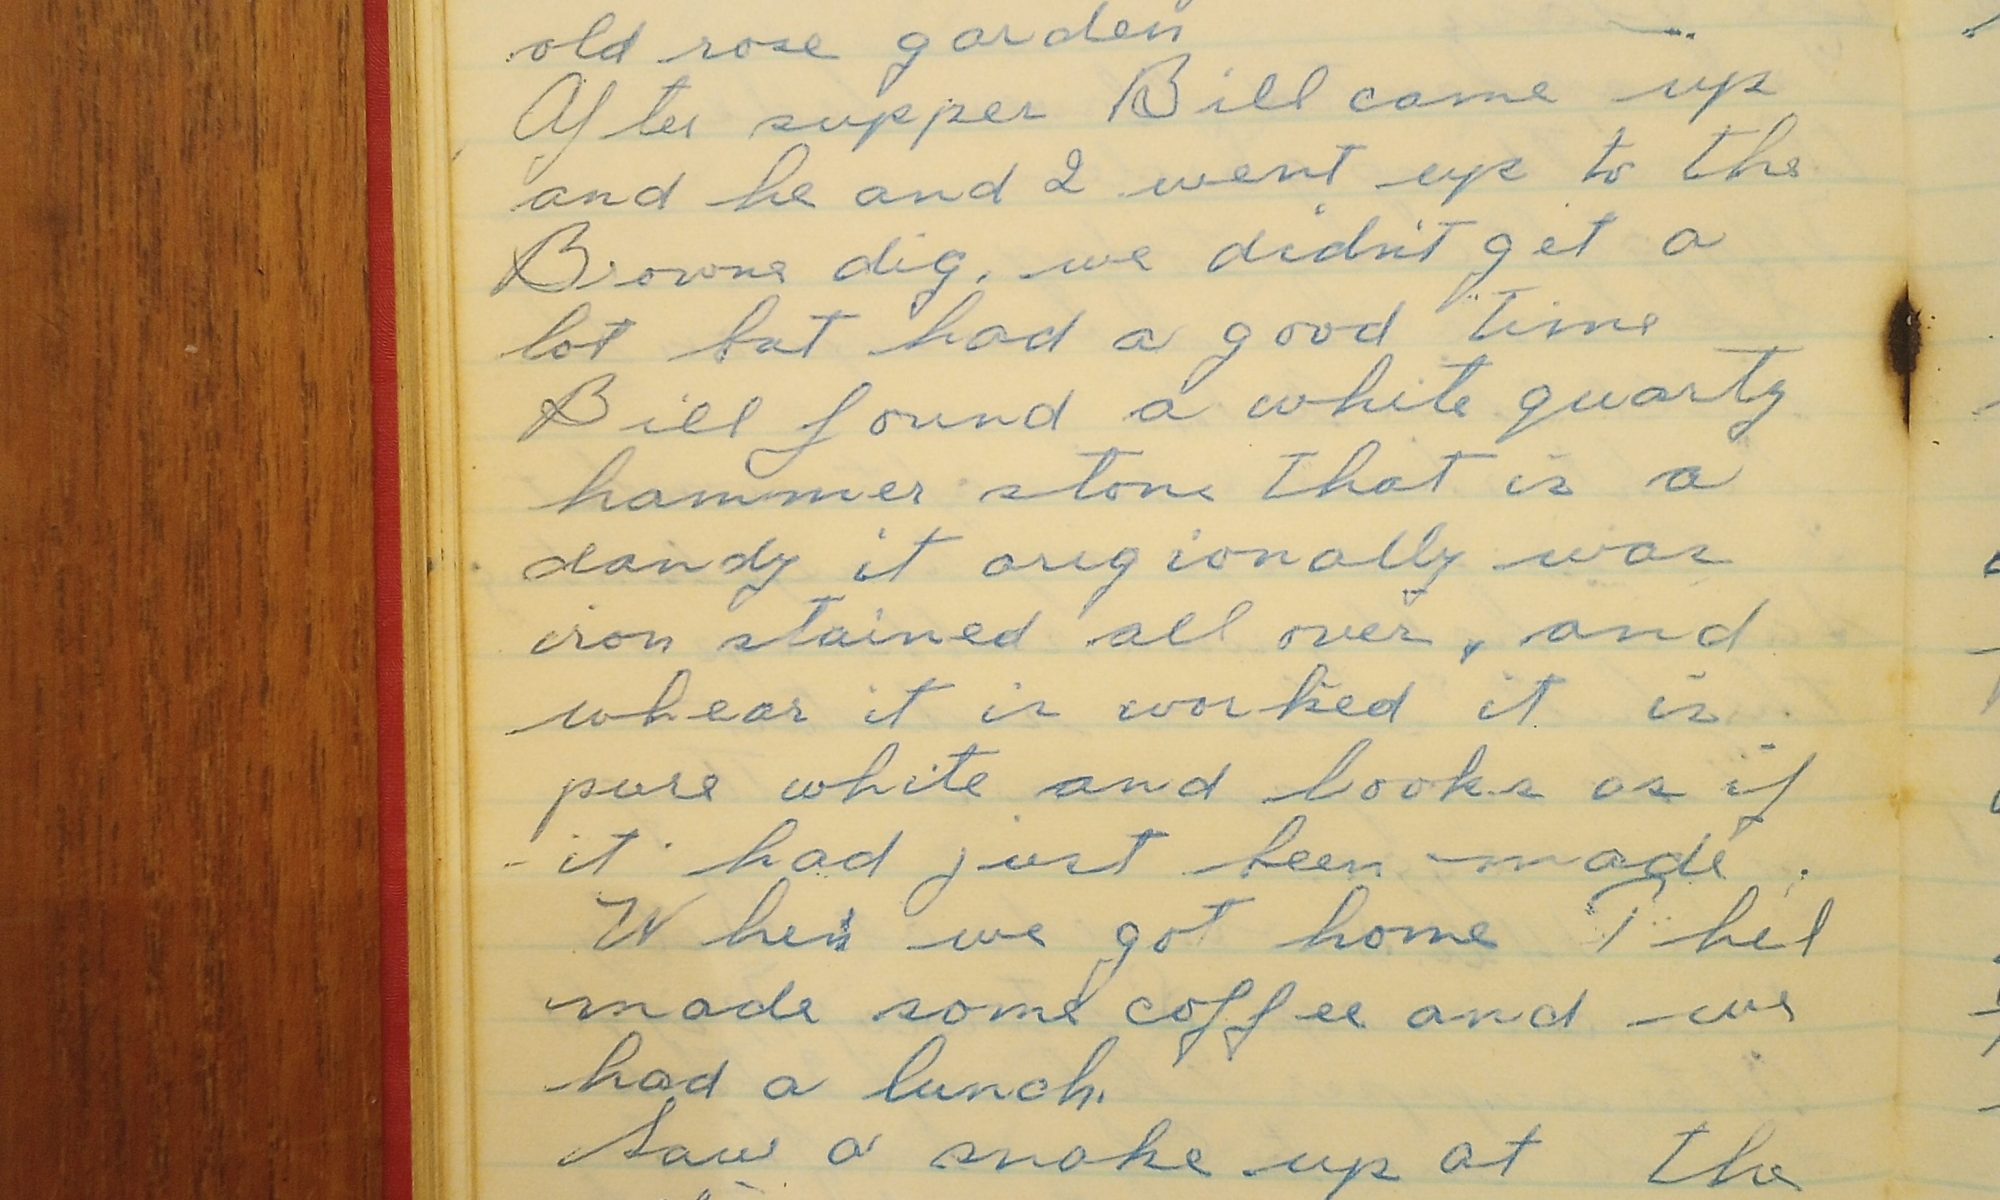 old rose garden
After supper Bill came up
and he and I went up to the
Browne dig, we didn't get a
lot but had a good time
Bill found a white quartz
hammer stone that is a
dandy it origionally was
iron stained all over, and
whear it is worked it is
pure white and looks as if
it had just been made.
When we got home Thel
made some coffee and we
had a lunch.
Saw a snake up at the